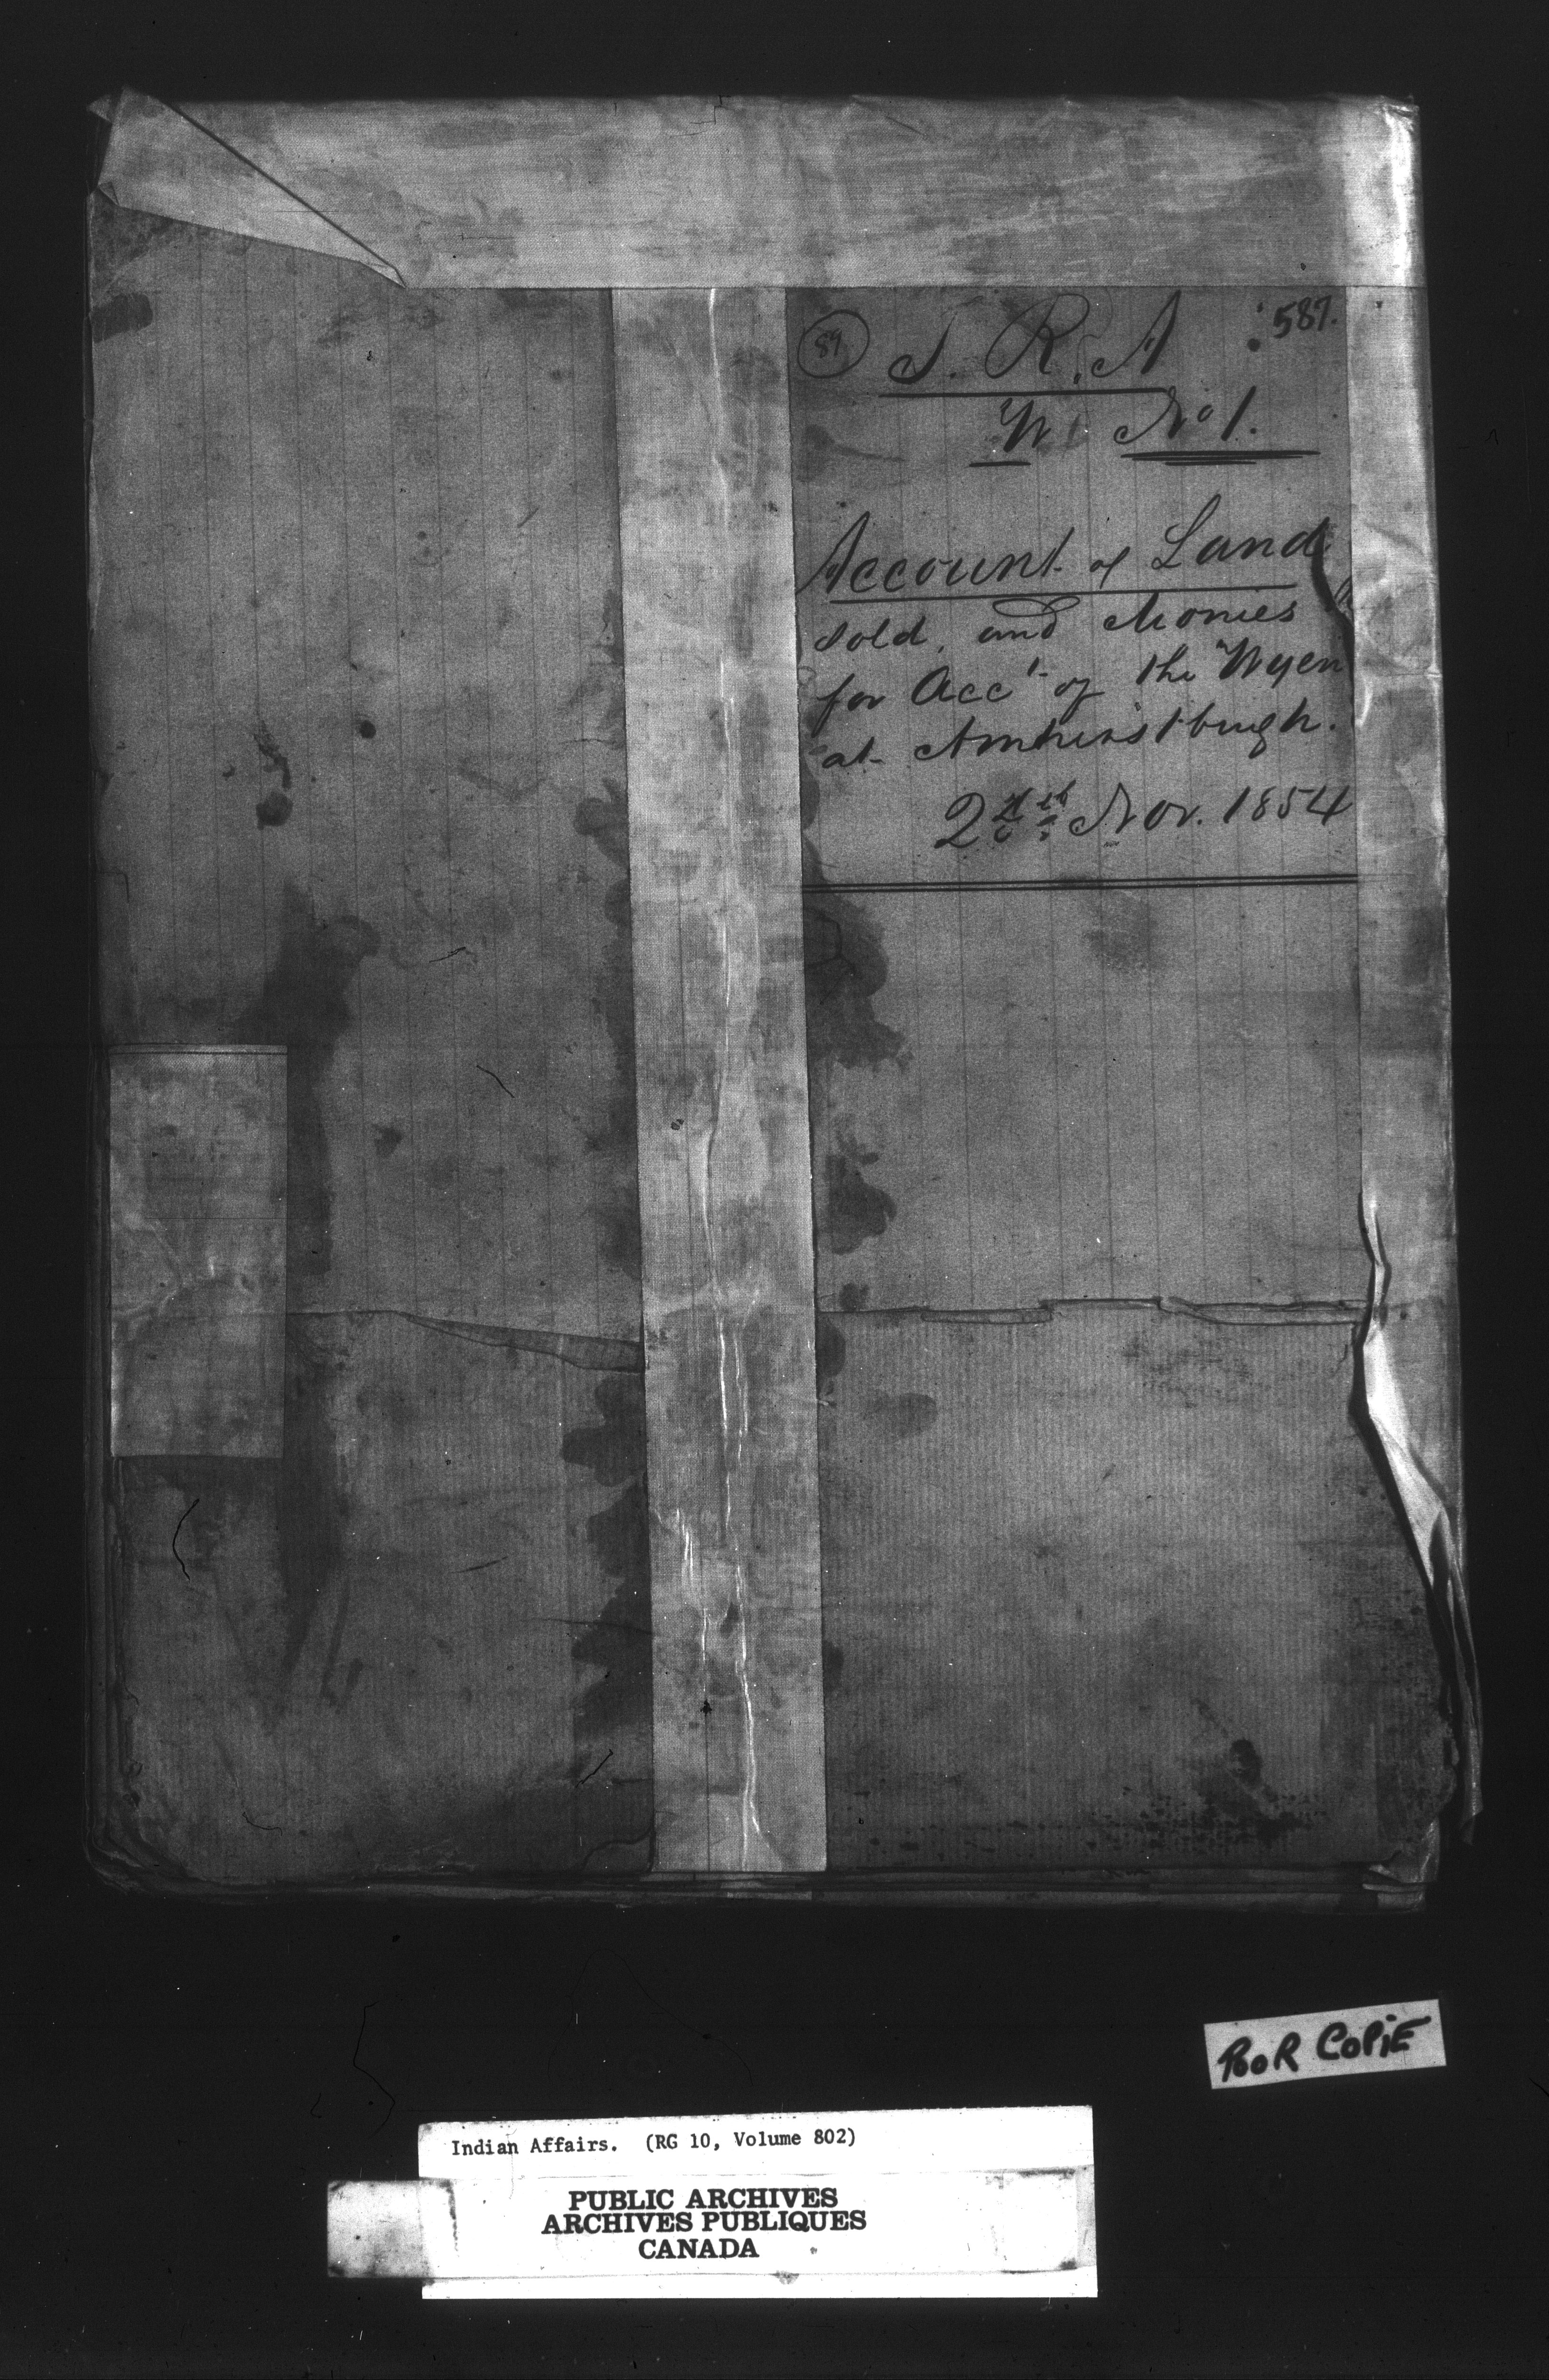 89
587.
No 1.
Account of Land
sold, and Monies
for Acct of the Wyen
at Amherstburgh.
Nov. 1854
POOR COPIE
Indian Affairs. (RG 10, Volume 802)
PUBLIC ARCHIVES
ARCHIVES PUBLIQUES
CANADA